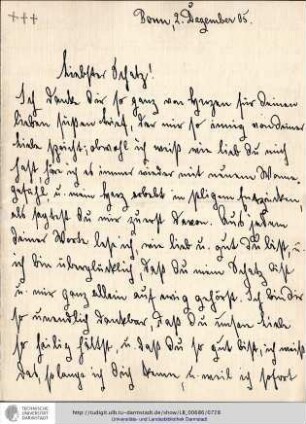 +++
Bonn, 2. Dezember 05.
Liebster Schatz!
Ich danke Dir so ganz von Herzen für Deinen
lieben süßen Brief, der mir so innig von deiner
Liebe spricht; obwohl ich weiß wie lieb Du mich
hast, hör ich es immer wieder mit neuem Wonne-
gefühl, u. mein Herz erbebt in seligem Entzücken,
als sagtest Du mir zuerst davon. Aus jedem
Deiner Worte lese ich, wie lieb u. gut Du bist, u.
ich bin überglücklich, daß Du mein Schatz bist
u. mir ganz allein auf ewig gehörst. Ich bin dir
so unendlich dankbar, daß Du unsere Liebe
so heilig hältst u. daß Du so gut bist, ich weiß
das, solange ich Dich kenne, u. weil ich sofort
TECHNISCHE
UNIVERSITÄT
DARMSTADT
http://tudigit.ulb.tu-darmstadt.de/show/LB_00686/0726
Universitäts- und Landesbibliothek Darmstadt